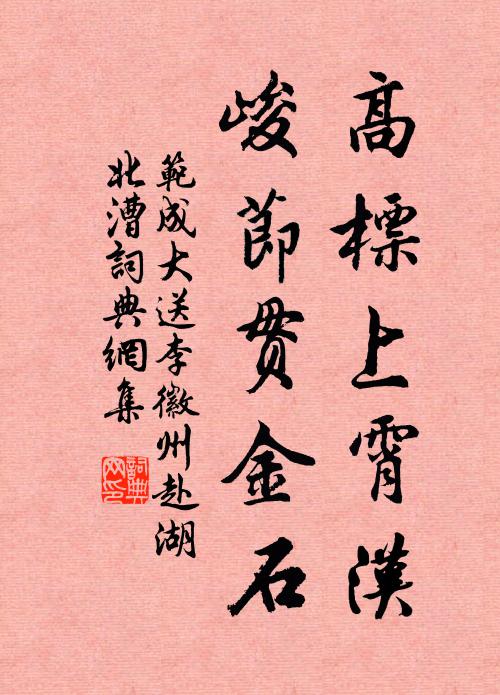 高標上霄漢
峻節贯金石
範成大送李徽州赴湖
北漕詞典網集
詞典
网印